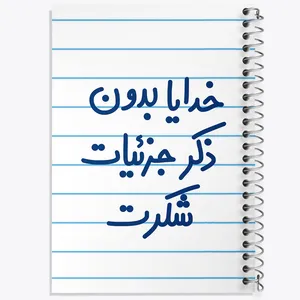 خدایا بدون
ذکر جزئیات
شکرت